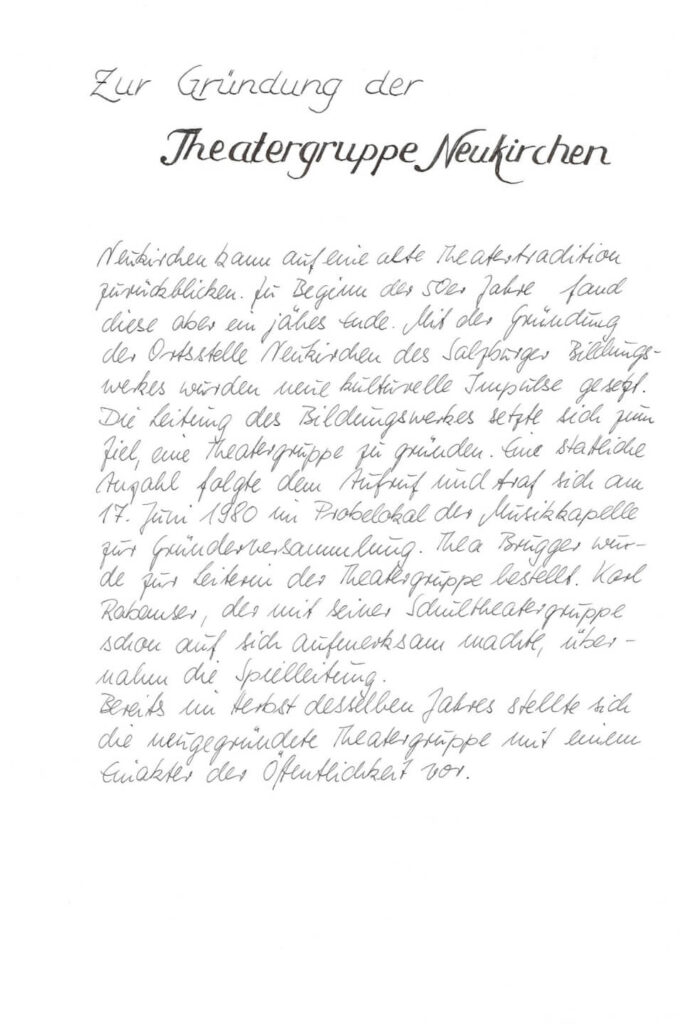 Zur Gründung der
Theatergruppe Neukirchen
Neukirchen kann auf eine alte Theatertradition
zurückblicken. Zu Beginn der 50er Jahre fand
diese aber ein jähes Ende. Mit der Gründung
der Ortsstelle Neukirchen des Salzburger Bildungs-
werkes wurden neue kulturelle Impulse gesetzt.
Die Leitung des Bildungswerkes setzte sich zum
Ziel, eine Theatergruppe zu gründen. Eine stattliche
Anzahl folgte dem Aufruf und traf sich am
17. Juni 1980 im Probelokal der Musikkapelle
zur Gründerversammlung. Thea Brugger wur-
de zur Leiterin der Theatergruppe bestellt. Karl
Rabanser, der mit seiner Schultheatergruppe
schon auf sich aufmerksam machte, über-
nahm die Spielleitung.
Bereits im Herbst desselben Jahres stellte sich
die neugegründete Theatergruppe mit einem
Einakter der Öffentlichkeit vor.